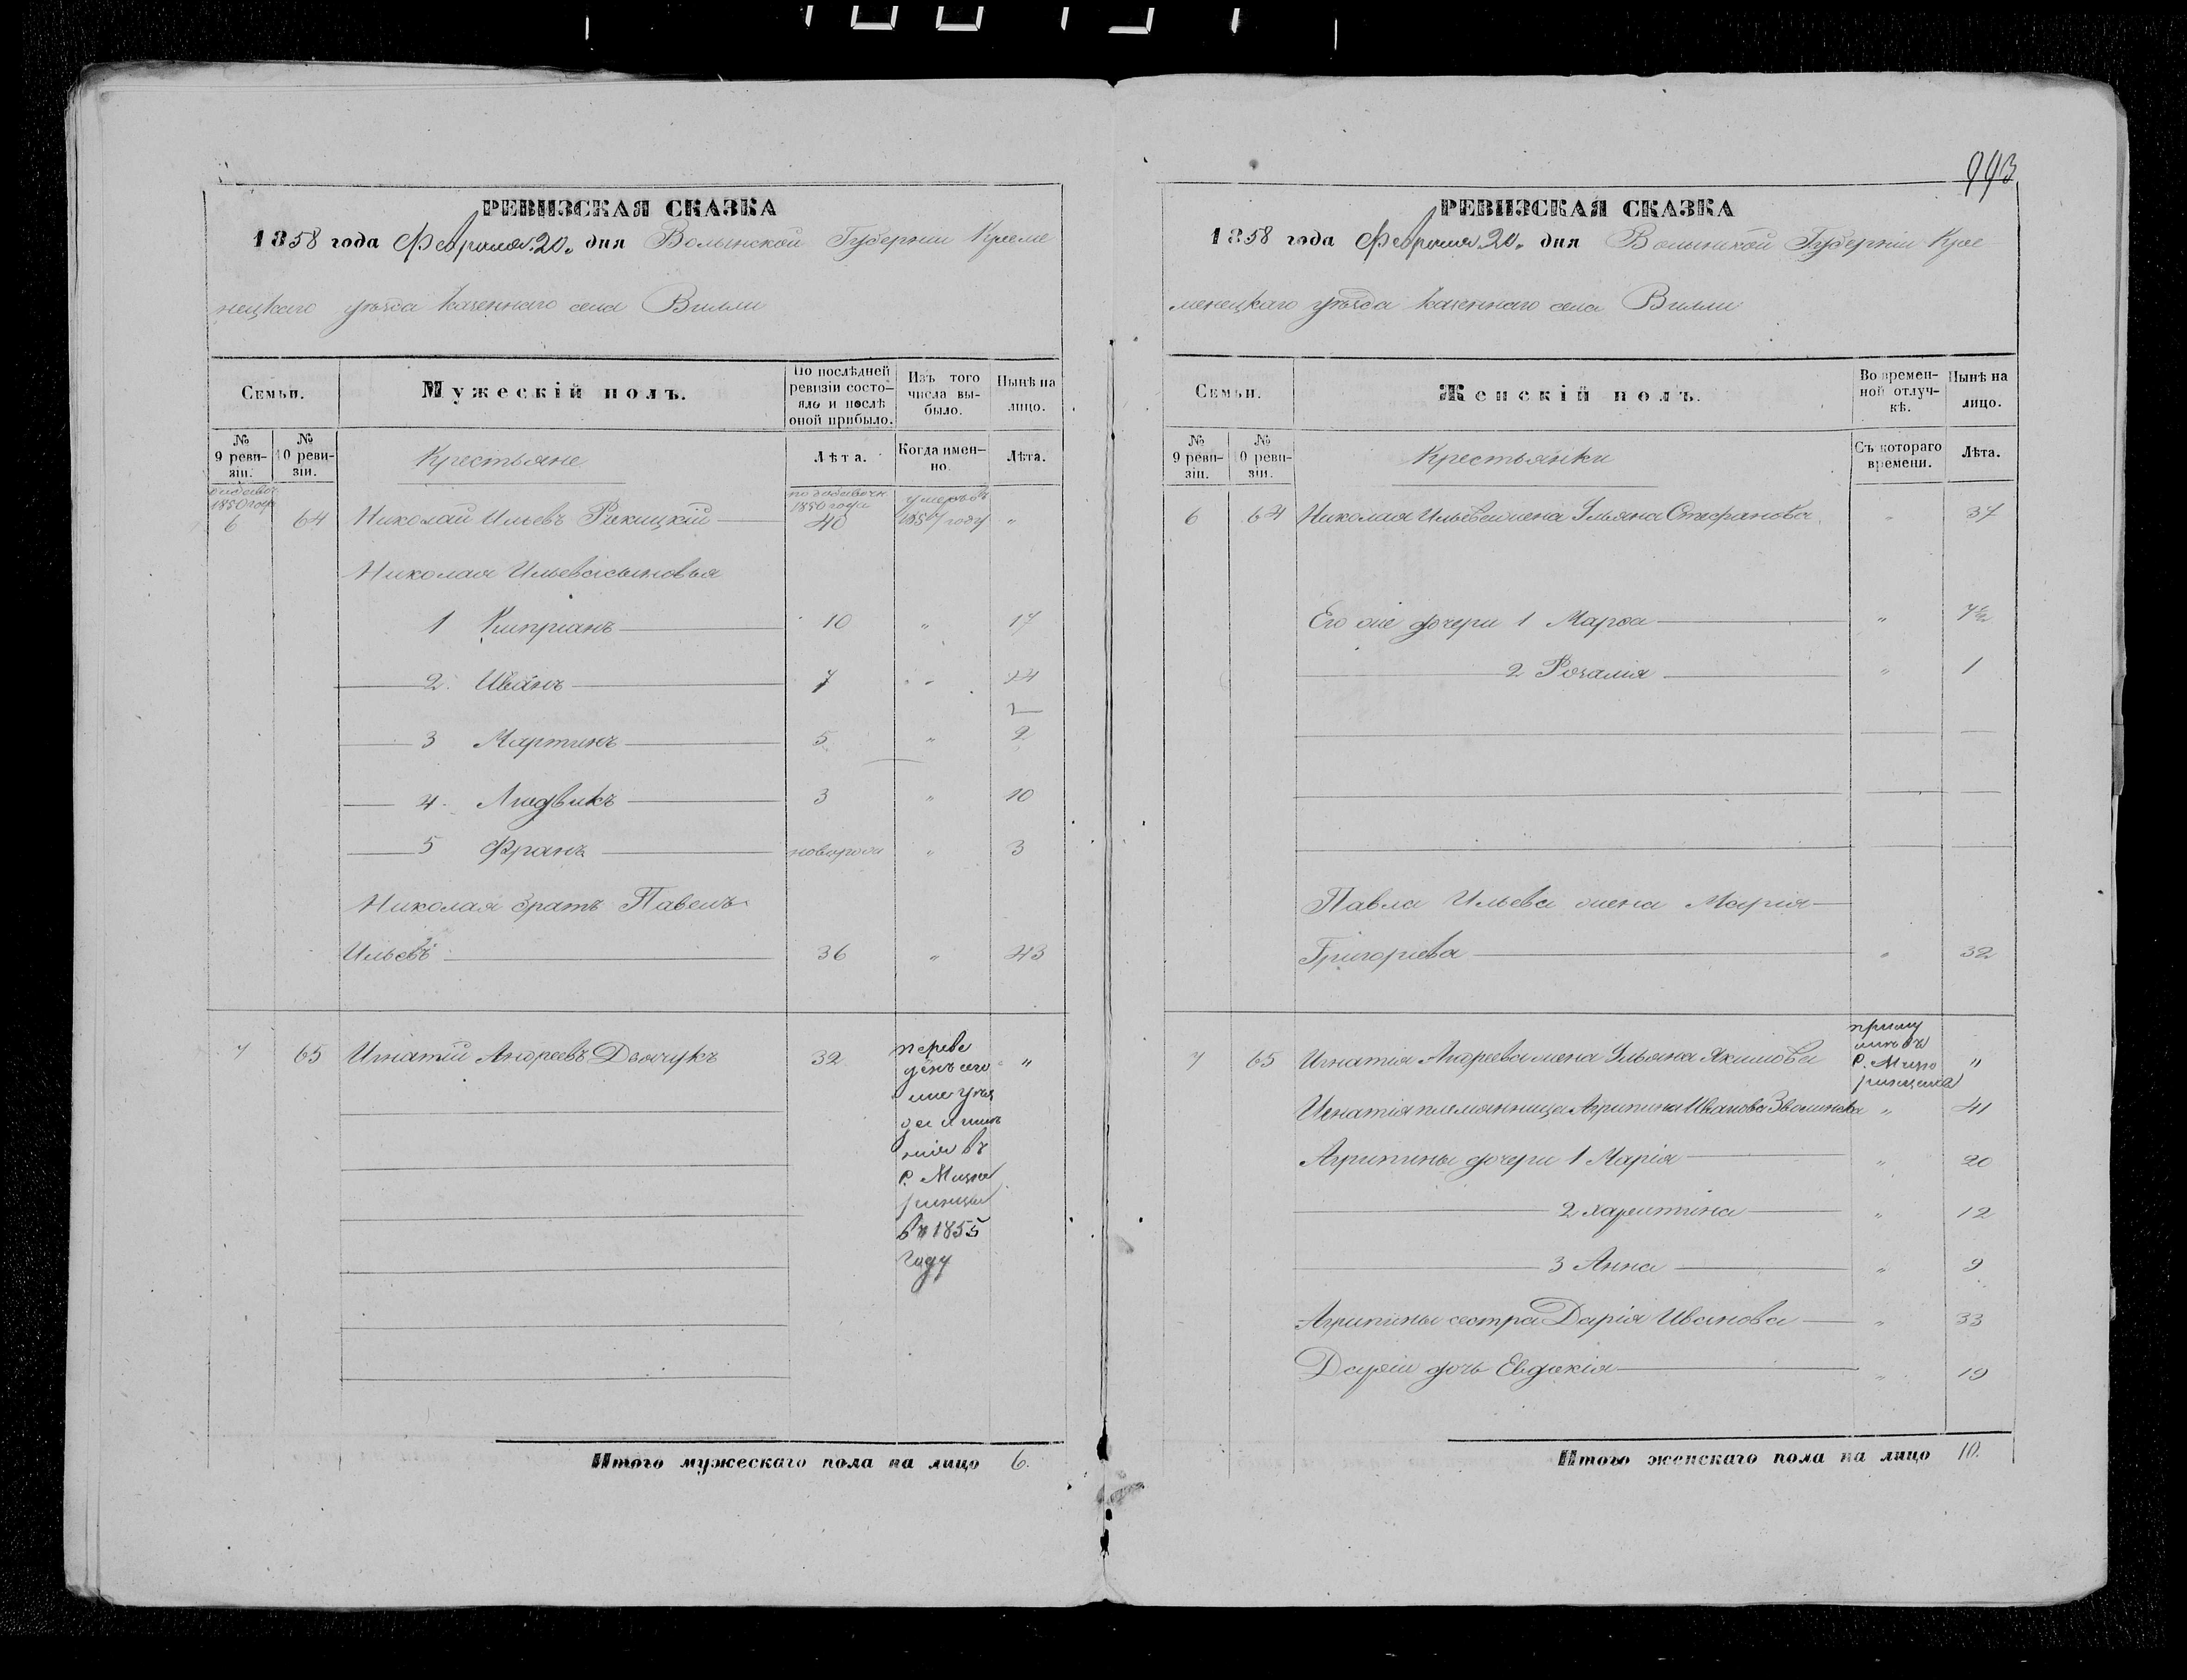 993
РЕВИЗСКАЯ СКАЗКА
1858 года Февраля 20 дня Волынской Губерніи Креме
нецкаго уѣзда казеннаго села Вилли
Семьи.
Мужескій полъ.
По послѣдней ревизіи состояло и послѣ оной прибыло.
Изъ того числа выбыло.
Нынѣ на лицо.
№ 9 ревизіи.
№ 10 ревизіи.
Крестьяне
Лѣта.
Когда именно.
Лѣта.
1850 года
по 1850 года
умеръ въ
6 64 Николай Ильевъ 40 1857 году "
Николая Ильева сыновья
1 Кипріанъ 10 " 17
2. Иванъ 7 " 14
3 Мартинъ 5 "
4. Людвикъ 3 " 10
5 Франъ новорож " 3
Николая братъ Павелъ
Ильевъ 36 " 43
7 65 Игнатій Андреевъ 32 переве "
денъ сего
же уѣз
да
нія въ
с.
въ 1855
году
Итого мужескаго пола на лицо 6.
РЕВИЗСКАЯ СКАЗКА
1858 года Февраля 20 дня Волынской Губерніи Кре
менецкаго уѣзда казеннаго села Вилли
Семьи.
Женскій полъ.
Во временной отлучкѣ.
Нынѣ на лицо.
№ 9 ревизіи.
№ 10 ревизіи.
Крестьянки
Съ котораго времени.
Лѣта.
6 64 Николая Ильева жена Ульяна Стефанова " 37
Его же дочери 1 Марѳа " 7½
2 Розалія " 1
Павла Ильева жена Марія
Григорьева " 32
7 65 Игнатія Андреева жена Ульяна Якимова "
Игнатія племянница Агрипина Иванова " 41
Агрипины дочери 1 Марія " 20
2 Харитина " 12
3 Анна " 9
Агрипины сестра Дарія Иванова " 33
Даріи дочь Евдокія " 19
Итого женскаго пола на лицо 10.